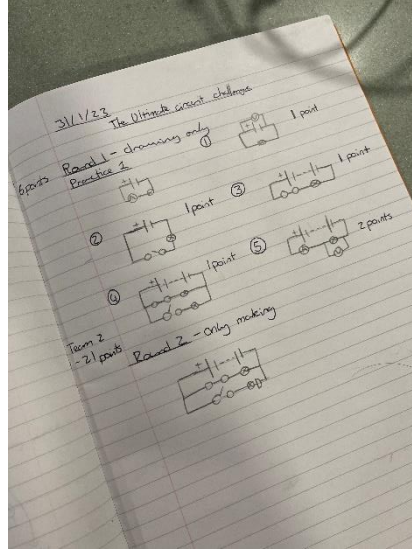 31/1/23
The Ultimate circuit challenge
6 points Round 1 - drawing only
Practice 1
① 1 point
② 1 point
③ 1 point
④ 1 point
⑤ 2 points
Team 2
-21 points
Round 2 - only making